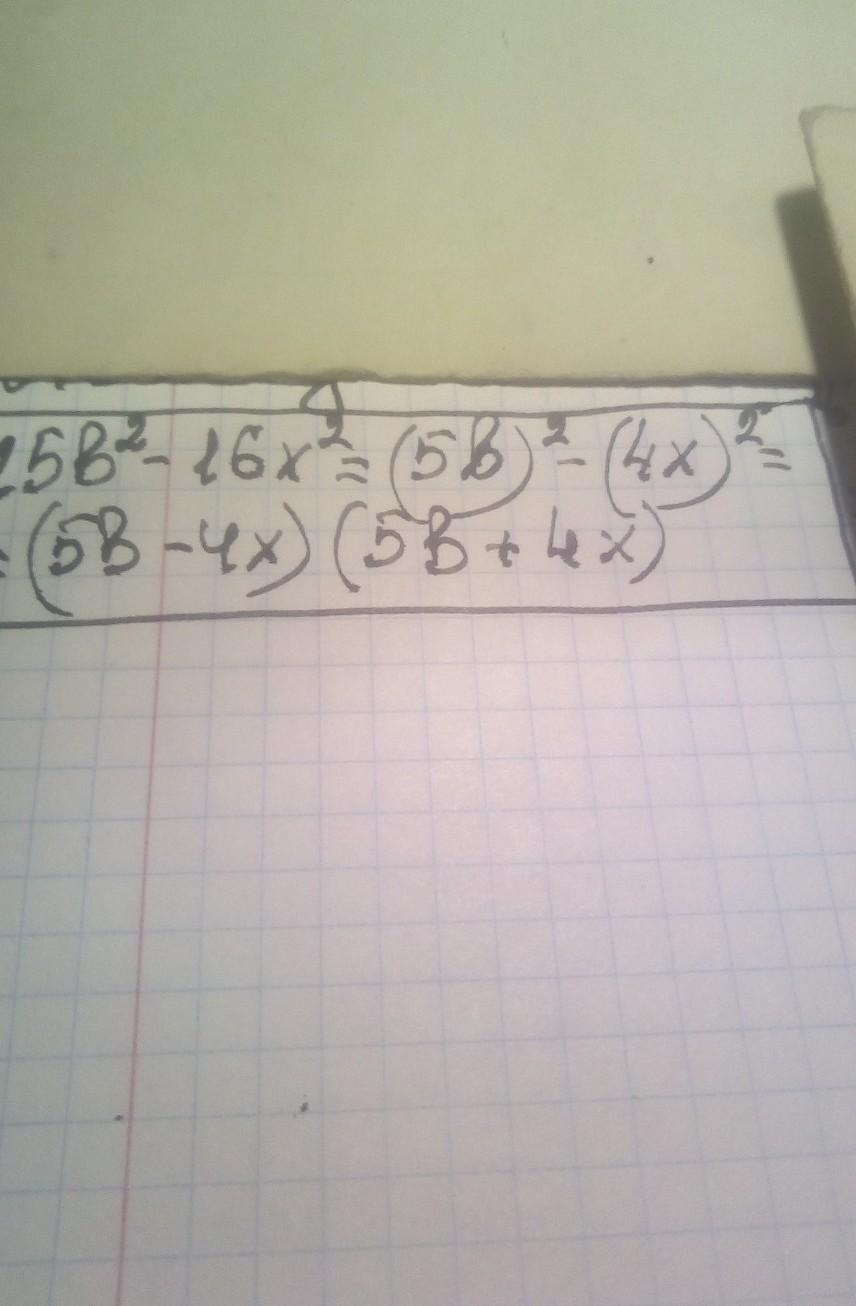 25b² - 16x² = (5b)² - (4x)² =
= (5b - 4x) (5b + 4x)